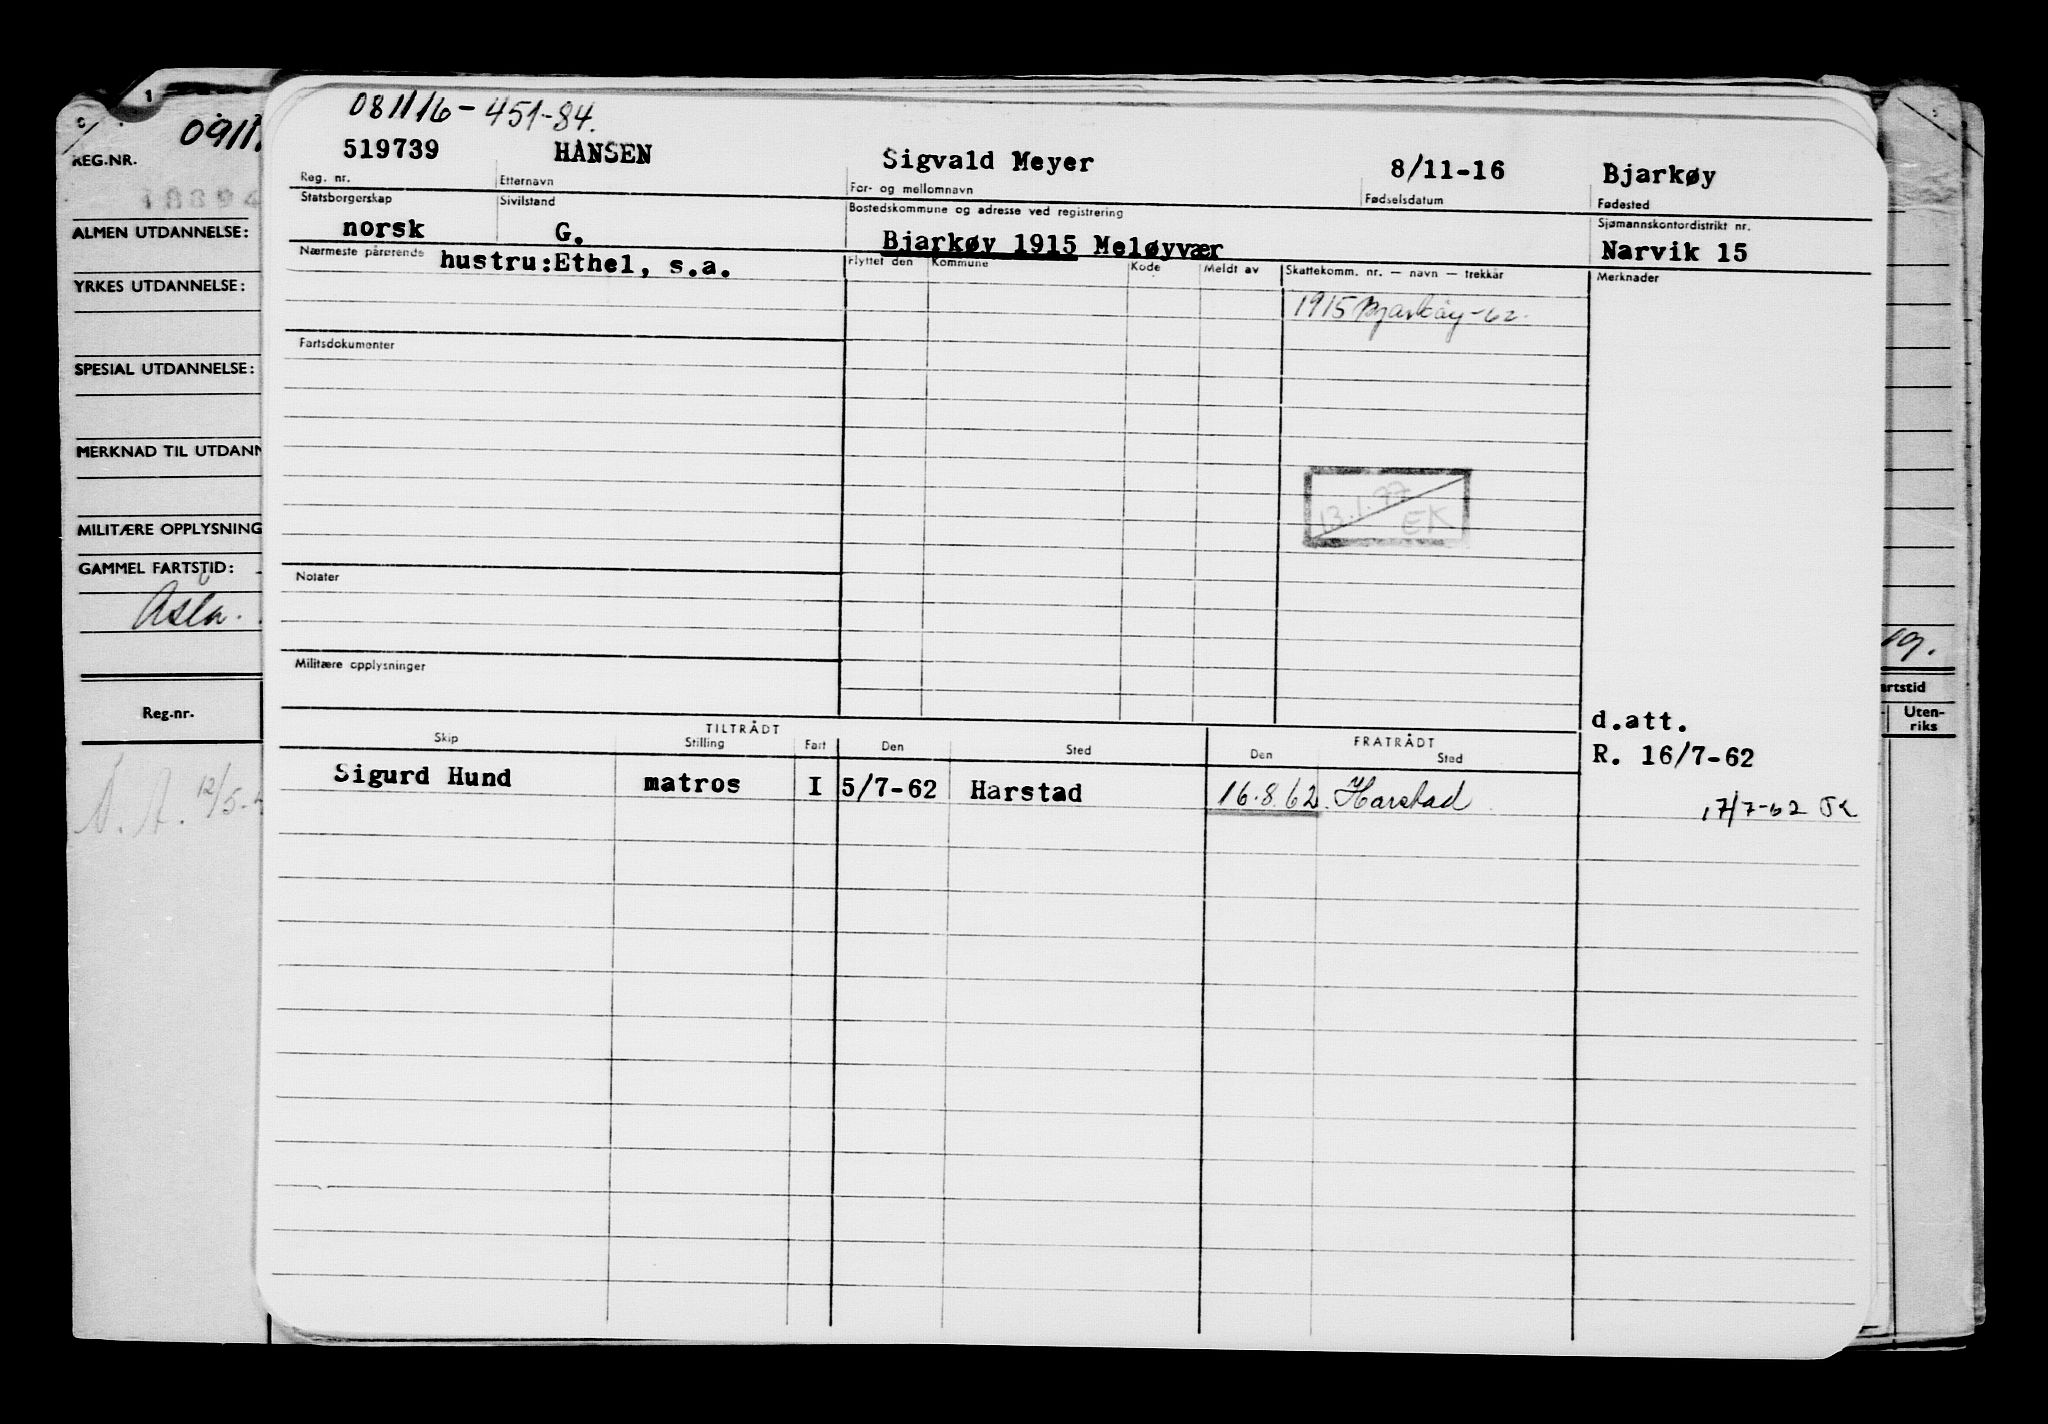 1
09117
REG.NR.
18894
ALMEN UTDANNELSE:
YRKES UTDANNELSE:
SPESIAL UTDANNELSE:
MERKNAD TIL UTDANN
MILITÆRE OPPLYSNING
GAMMEL FARTSTID:
Reg.nr.
12/5-
081116-451-84.
519739 HANSEN Sigvald Meyer 8/11-16 Bjarkøy
Reg. nr. Etternavn For- og mellomnavn Fødselsdatum Fødested
Statsborgerskap Sivilstand Bostedskommune og adresse ved registrering Sjømannskontordistrikt nr.
norsk G. Bjarkøy 1915 Meløyvær Narvik 15
Nærmeste pårørende hustru:Ethel, s.a. Flyttet den Kommune Kode Meldt av Skattekomm. nr. — navn — trekkår Merknader
1915 Bjarkøy-62.
Fartsdokumenter
13.1.77
EK
Notater
Militære opplysninger
d.att.
R. 16/7-62
TILTRÅDT FRATRÅDT
Skip Stilling Fart Den Sted Den Sted
Sigurd Hund matros I 5/7-62 Harstad 16.8.62. Harstad
17/7-62
19.
artstid
Uten-
riks